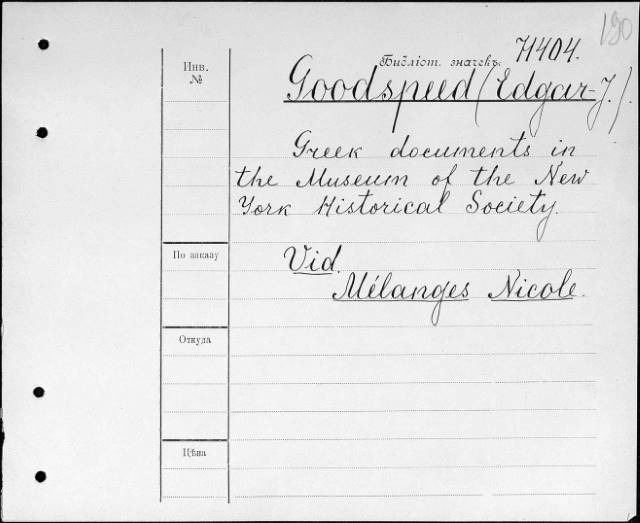 190
Библіот. значекъ.
71404.
Инв.
№
Goodspeed (Edgar-J.).
Greek documents in
the Museum of the New
York Historical Society.
По заказу
Vid.
Mélanges Nicole.
Откуда
Цѣна